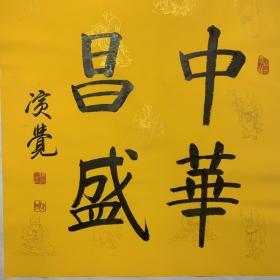 中華
昌盛
演覺